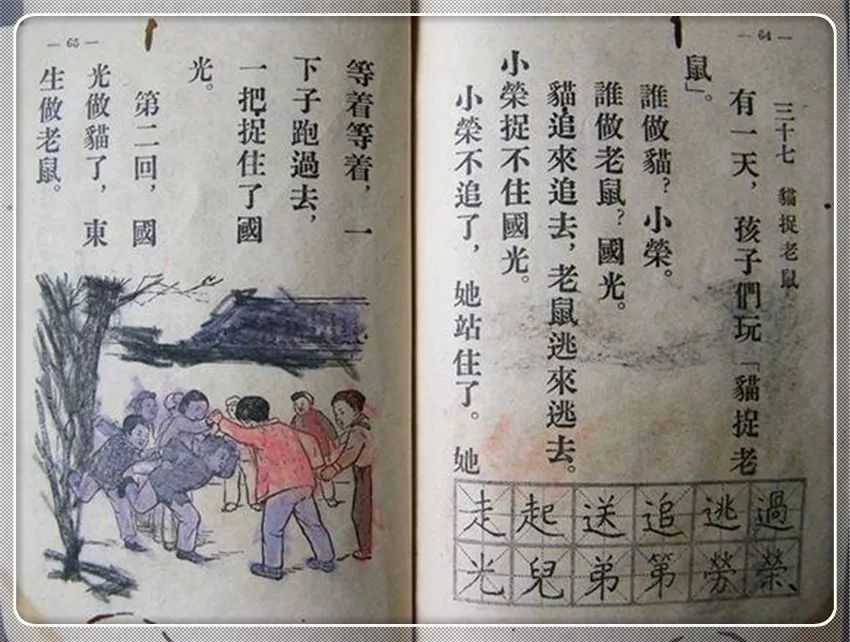 — 64 —
三十七 貓捉老鼠
有一天，孩子們玩「貓捉老
鼠」。
誰做貓？小榮。
誰做老鼠？國光。
貓追來追去，老鼠逃來逃去。
小榮捉不住國光。
小榮不追了，她站住了。她
過逃追送起走
榮勞第弟兒光
— 65 —
等着等着，一
下子跑過去，
一把捉住了國
光。
第二回，國
光做貓了，東
生做老鼠。